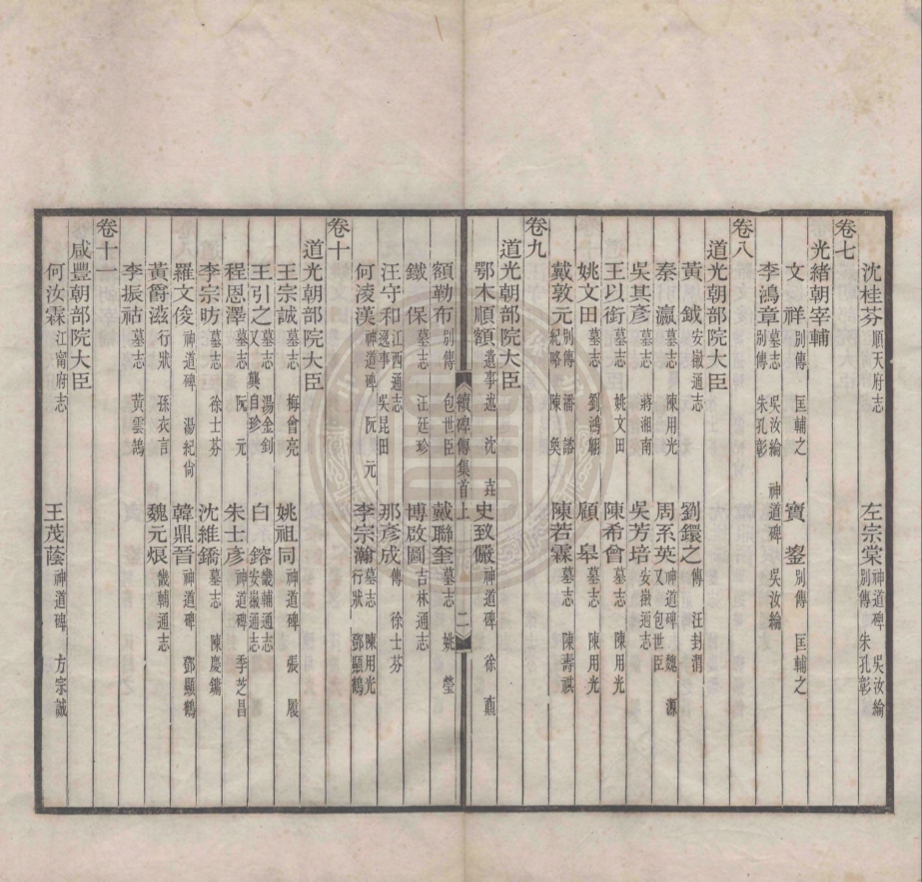 沈桂芬 順天府志 左宗棠 神道碑 吳汝綸 別傳 朱孔彰
卷七
光緒朝宰輔
文祥 別傳 匡輔之 寶鋆 別傳 匡輔之
李鴻章 墓志 吳汝綸 神道碑 吳汝綸 別傳 朱孔彰
卷八
道光朝部院大臣
黃鉞 安徽通志 劉鐶之 傳 汪封渭
秦瀛 墓志 陳用光 周系英 神道碑 魏源 又 包世臣
吳其彥 墓志 蔣湘南 吳芳培 安徽通志
王以銜 墓志 姚文田 陳希曾 墓志 陳用光
姚文田 墓志 劉鴻翱 顧皋 墓志 陳用光
戴敦元 別傳 潘諮 紀略 陳奐 陳若霖 墓志 陳壽祺
卷九
道光朝部院大臣
鄂木順額 遺事述 沈垚 史致儼 神道碑 徐鼒
續碑傳集首上 二
額勒布 別傳 包世臣 戴聯奎 墓志 姚瑩
鐵保 墓志 汪廷珍 博啟圖 吉林通志
汪守和 江西通志 逸事 吳昆田 那彥成 傳 徐士芬
何淩漢 神道碑 阮元 李宗瀚 墓志 陳用光 行狀 鄧顯鶴
卷十
道光朝部院大臣
王宗誠 墓志 梅曾亮 姚祖同 神道碑 張履
王引之 墓志 湯金釗 又 龔自珍 白鎔 畿輔通志 安徽通志
程恩澤 墓志 阮元 朱士彥 神道碑 李芝昌
李宗昉 墓志 徐士芬 沈維鐈 墓志 陳慶鏞
羅文俊 神道碑 湯紀尚 韓鼎晉 神道碑 鄧顯鶴
黃爵滋 行狀 孫衣言 魏元烺 畿輔通志
李振祜 墓志 黃雲鵠
卷十一
咸豐朝部院大臣
何汝霖 江甯府志 王茂蔭 神道碑 方宗誠